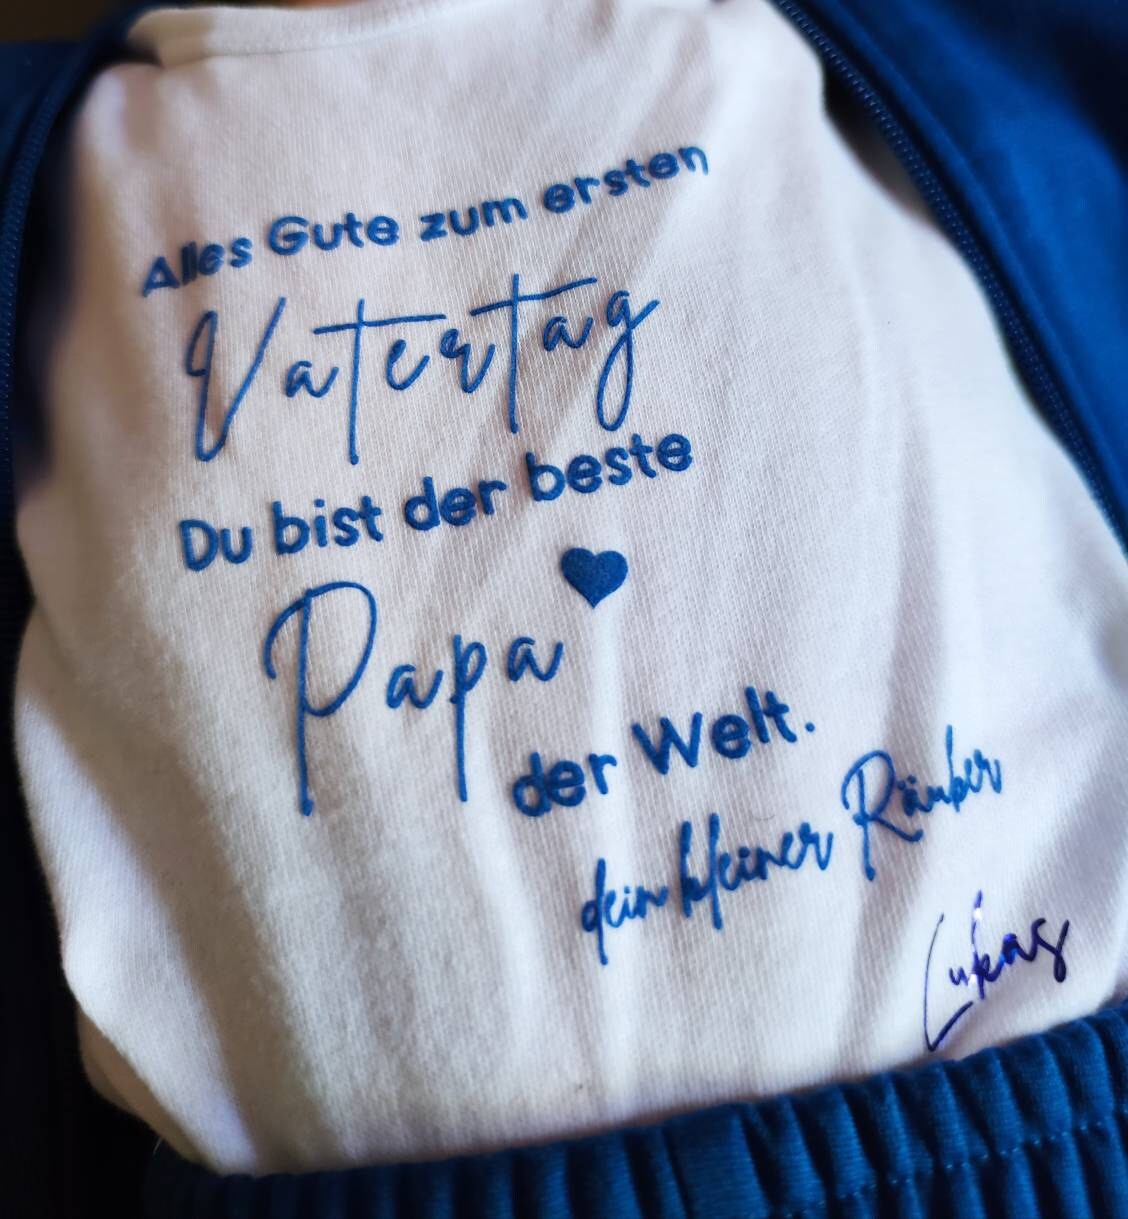 Alles Gute zum ersten
Vatertag
Du bist der beste
Papa
der Welt.
dein kleiner Räuber
Lukas